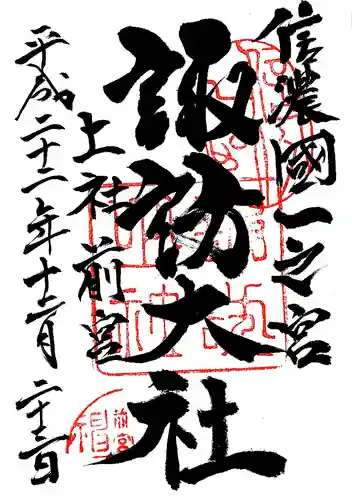 信濃國一之宮
諏訪大社
上社前宮
平成二十二年十二月二十二日